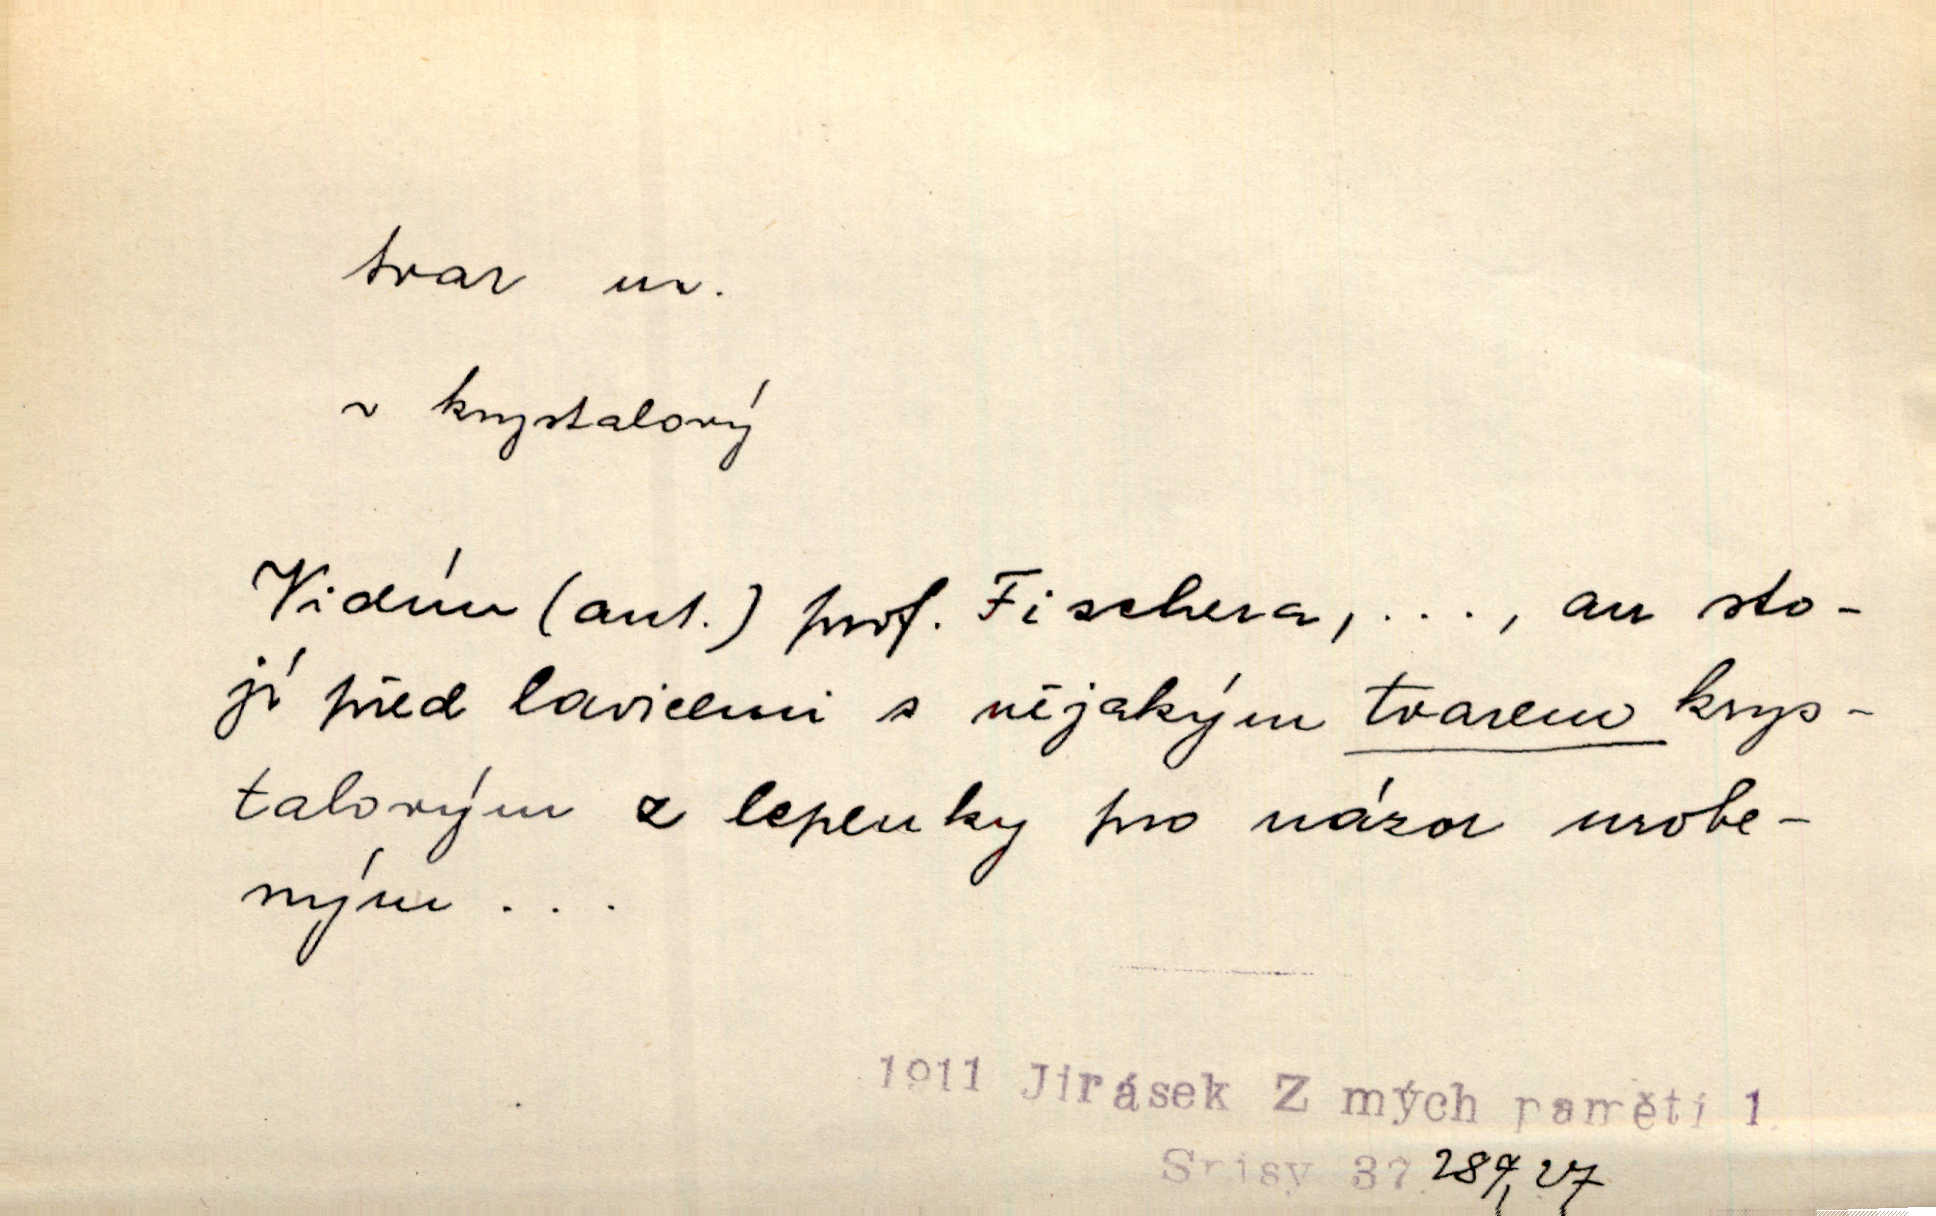 tvar m.
~ krystalový
Vidím (aut.) prof. Fischera, . . . , an sto-
jí před lavicemi s nějakým tvarem krys-
talovým z lepenky pro názor urobe-
ným . . .
1911 Jirásek Z mých pamětí 1
Spisy 37 289, 27